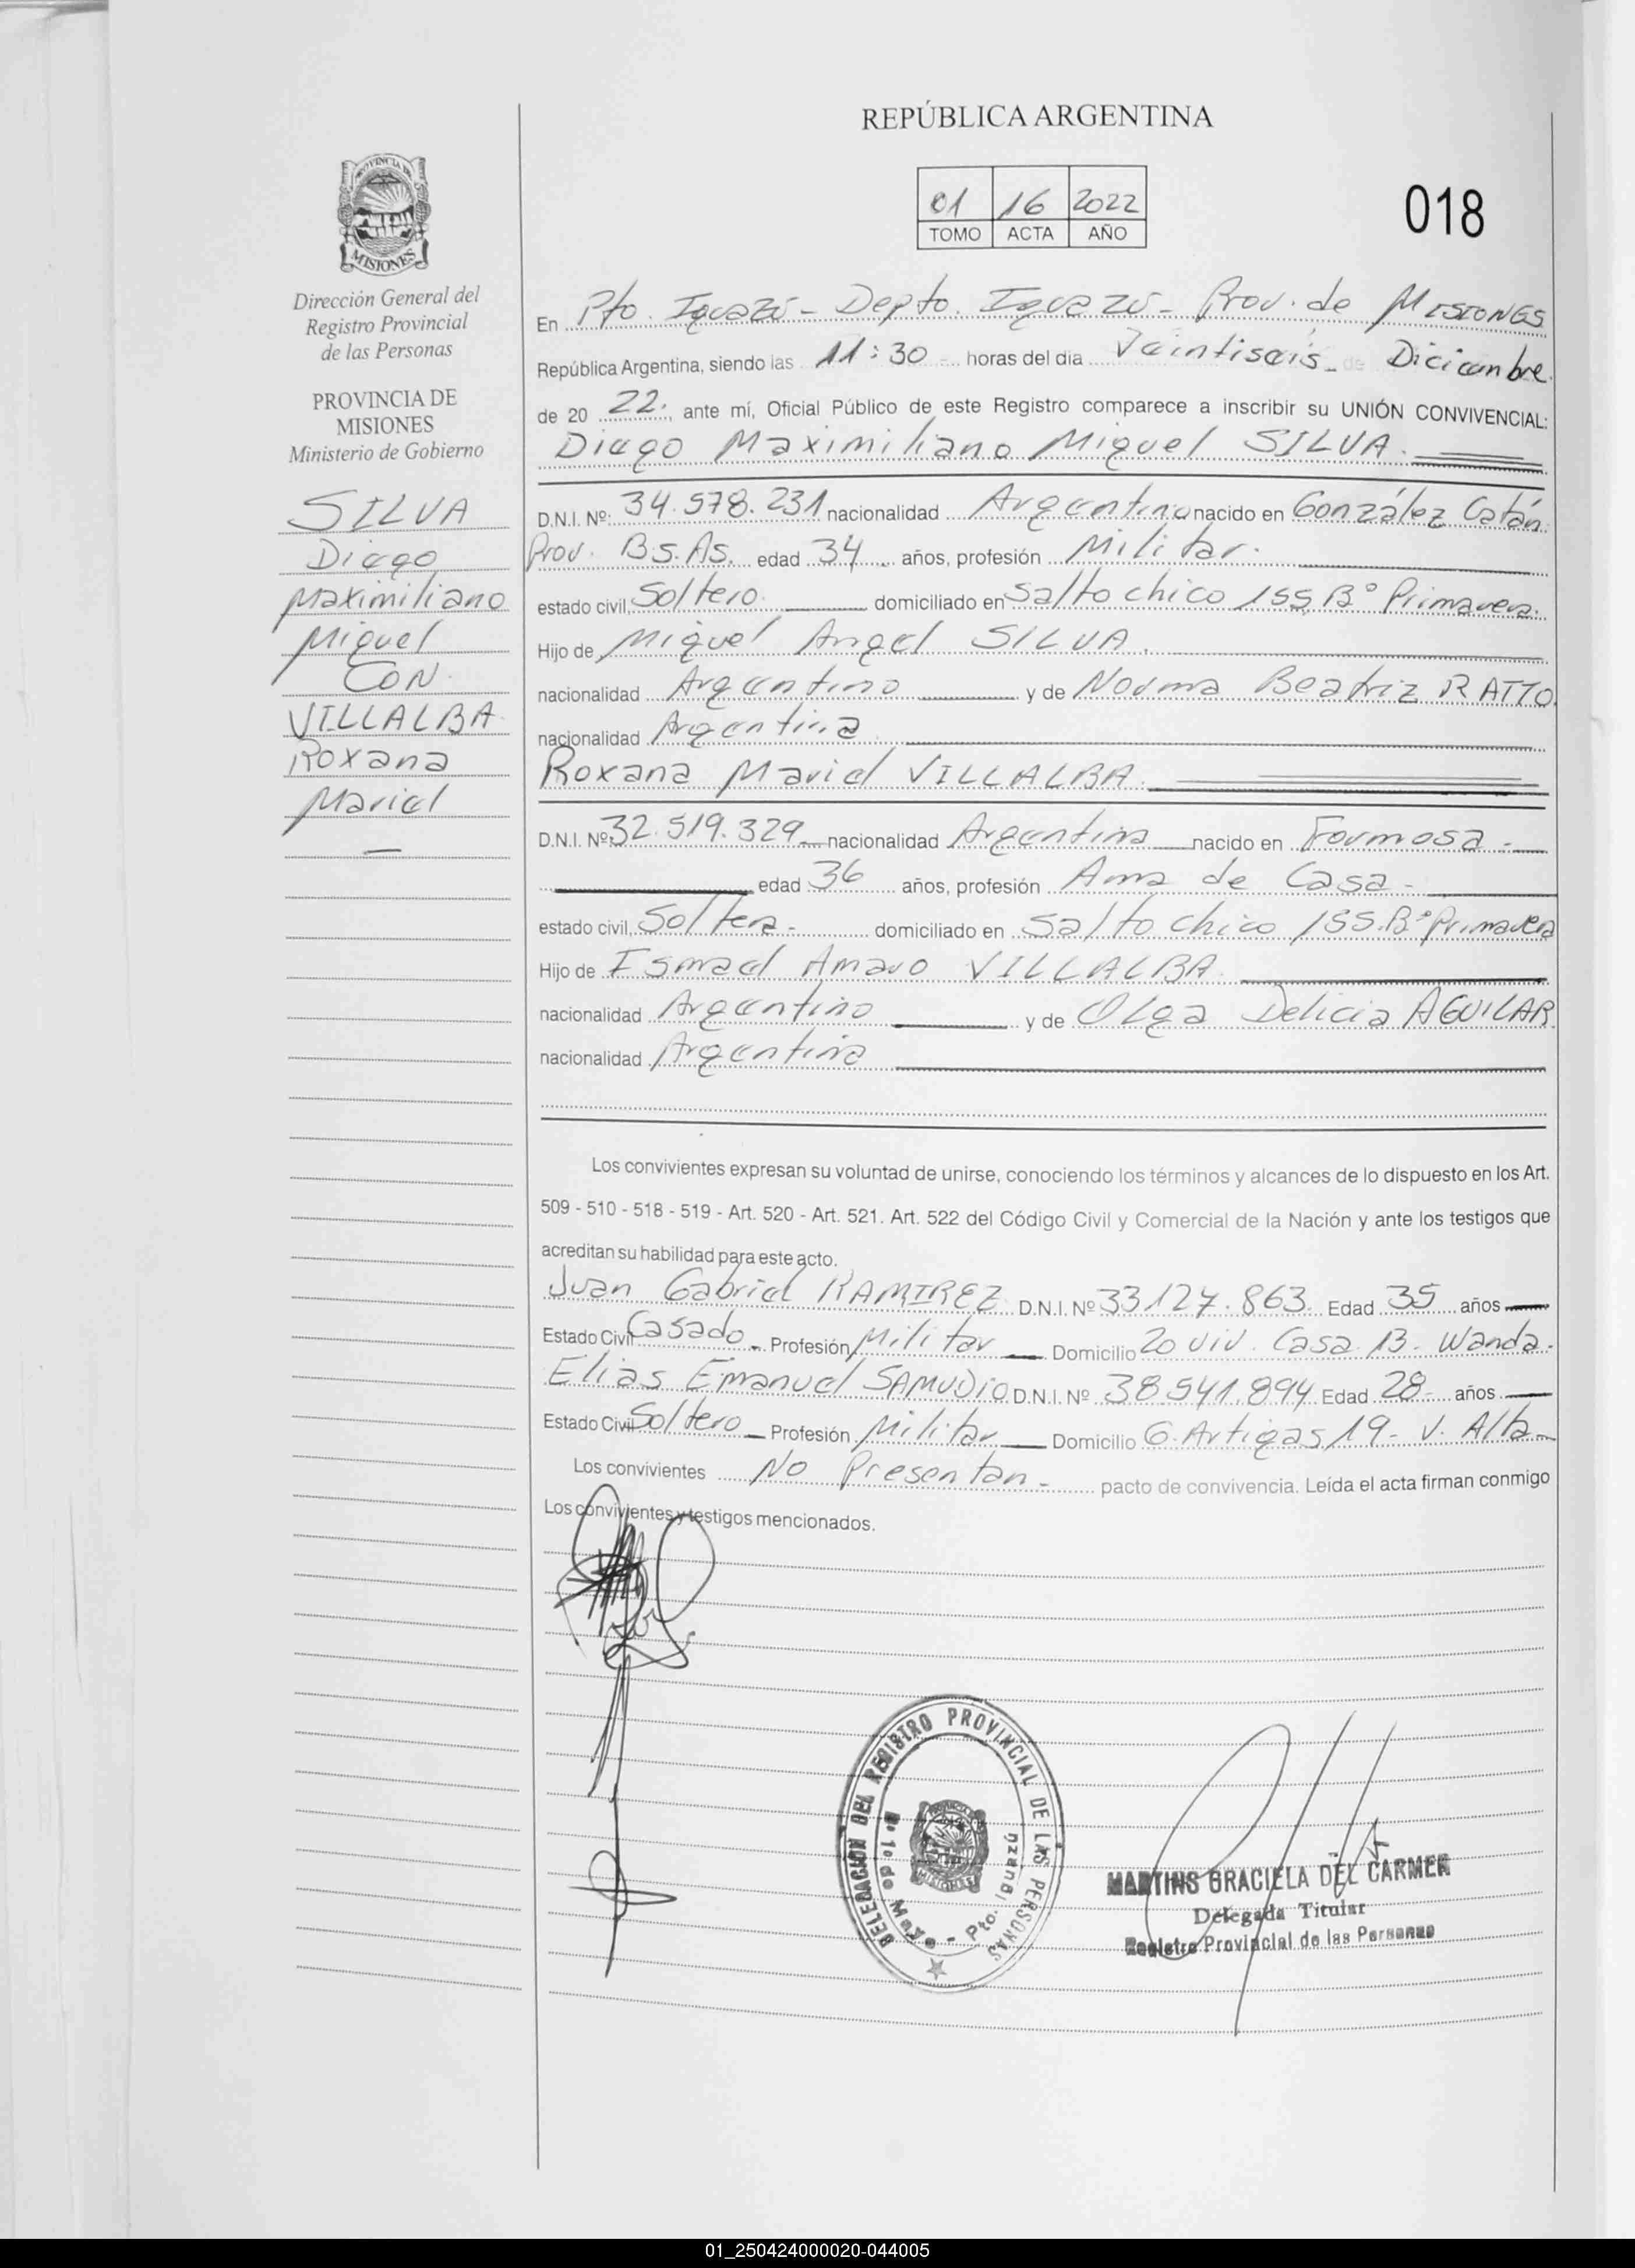 REPÚBLICA ARGENTINA
01 16 2022
TOMO ACTA AÑO
018
PROVINCIA DE
MISIONES
Dirección General del
Registro Provincial
de las Personas
PROVINCIA DE
MISIONES
Ministerio de Gobierno
SILVA
Diego
Maximiliano
Miguel
CON.
VILLALBA
Roxana
Mariel
En Pto. Iguazú - Depto. Iguazú - Prov. de MISIONES
República Argentina, siendo las 11:30 - horas del dia Veintiseis - de Diciembre
de 20 22, ante mí, Oficial Público de este Registro comparece a inscribir su UNIÓN CONVIVENCIAL:
Diego Maximiliano Miguel SILVA.
D.N.I. Nº: 34.578.231 nacionalidad Argentino nacido en González Catán
Prov. Bs.As. edad 34 años, profesión Militar.
estado civil Soltero. domiciliado en Salto chico 155 Bº Primavera.
Hijo de Miguel Angel SILVA.
nacionalidad Argentino y de Norma Beatriz RATTO
nacionalidad Argentina
Roxana Mariel VILLALBA.
D.N.I. Nº 32.519.329 nacionalidad Argentina nacido en Formosa -
edad 36 años, profesión Ama de Casa -
estado civil Soltera - domiciliado en Salto chico 155.Bº Primavera
Hijo de Ismael Amaro VILLALBA
nacionalidad Argentino y de Olga Delicia AGUILAR
nacionalidad Argentina
Los convivientes expresan su voluntad de unirse, conociendo los términos y alcances de lo dispuesto en los Art.
509 - 510 - 518 - 519 - Art. 520 - Art. 521. Art. 522 del Código Civil y Comercial de la Nación y ante los testigos que
acreditan su habilidad para este acto.
Juan Gabriel RAMIREZ D.N.I. Nº 33.127.863. Edad 35 años
Estado Civil Casado - Profesión Militar Domicilio 20 viv. Casa 13 - Wanda.
Elias Emanuel SAMUDIO D.N.I. Nº 38.541.894 Edad 28 años
Estado Civil Soltero Profesión Militar Domicilio G. Artigas 19 - V. Alta
Los convivientes No Presentan - pacto de convivencia. Leída el acta firman conmigo
Los convivientes y testigos mencionados.
DELEGACION DEL REGISTRO PROVINCIAL DE LAS PERSONAS
1º de Mayo - Pto. Iguazú
MARTINS GRACIELA DEL CARMEN
Delegada Titular
Registro Provincial de las Personas
01_250424000020-044005